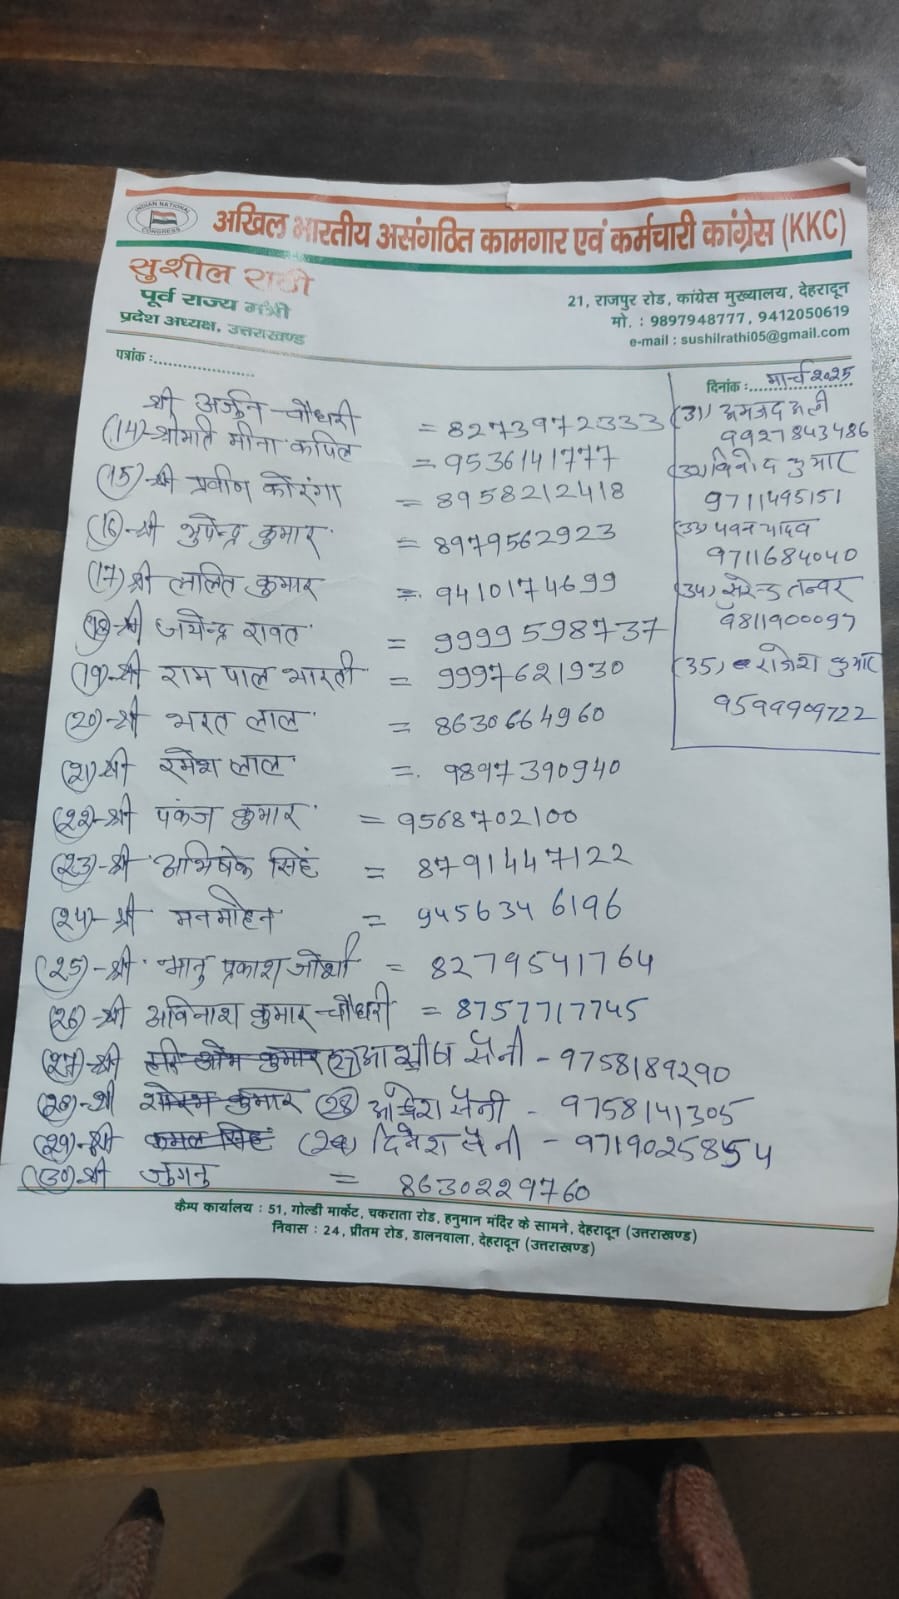 INDIAN NATIONAL CONGRESS
अखिल भारतीय असंगठित कामगार एवं कर्मचारी कांग्रेस (KKC)
सुशील राठी
पूर्व राज्य मंत्री
प्रदेश अध्यक्ष, उत्तराखण्ड
21, राजपुर रोड, कांग्रेस मुख्यालय, देहरादून
मो. : 9897948777, 9412050619
e-mail : sushilrathi05@gmail.com
पत्रांक :....................
दिनांक :....मार्च २०२५
श्री अर्जुन चौधरी = 8273972333
(14) श्रीमति मीना कपिल = 9536141777
(15) श्री प्रवीण कोरंगा = 8958212418
(16) श्री भुपेन्द्र कुमार = 8979562923
(17) श्री ललित कुमार = 9410174699
(18) श्री जयेन्द्र रावत = 9999598737
(19) श्री राम पाल भारती = 9997621930
(२०) श्री भरत लाल = 8630664960
(२१) श्री रमेश लाल = 9897390940
(२२) श्री पंकज कुमार = 9568702100
(२३) श्री अभिषेक सिहं = 8791447122
(२४) श्री मनमोहन = 9456346196
(२5) - श्री भानु प्रकाश जोशी = 8279541764
(२6) श्री अविनाश कुमार चौधरी = 8757717745
(२७) श्री हरि ओम कुमार (२७) आशीष सैनी - 9758189290
(२८) श्री कुमार (28) सैनी - 9758141305
(२९) श्री कमल सिहं (२९) दिनेश सैनी - 9719025854
(३०) श्री जुगनु = 8630229760
(३1) अमजद अली
9927843486
(३२) विनोद कुमार
9711495151
(३३) पवन यादव
9711684040
(३4) सुरेन्द्र तन्वर
9811900097
(३5) राजेश कुमार
9599909722
कैम्प कार्यालय : 51, गोल्डी मार्केट, चकराता रोड, हनुमान मंदिर के सामने, देहरादून (उत्तराखण्ड)
निवास : 24, प्रीतम रोड, डालनवाला, देहरादून (उत्तराखण्ड)